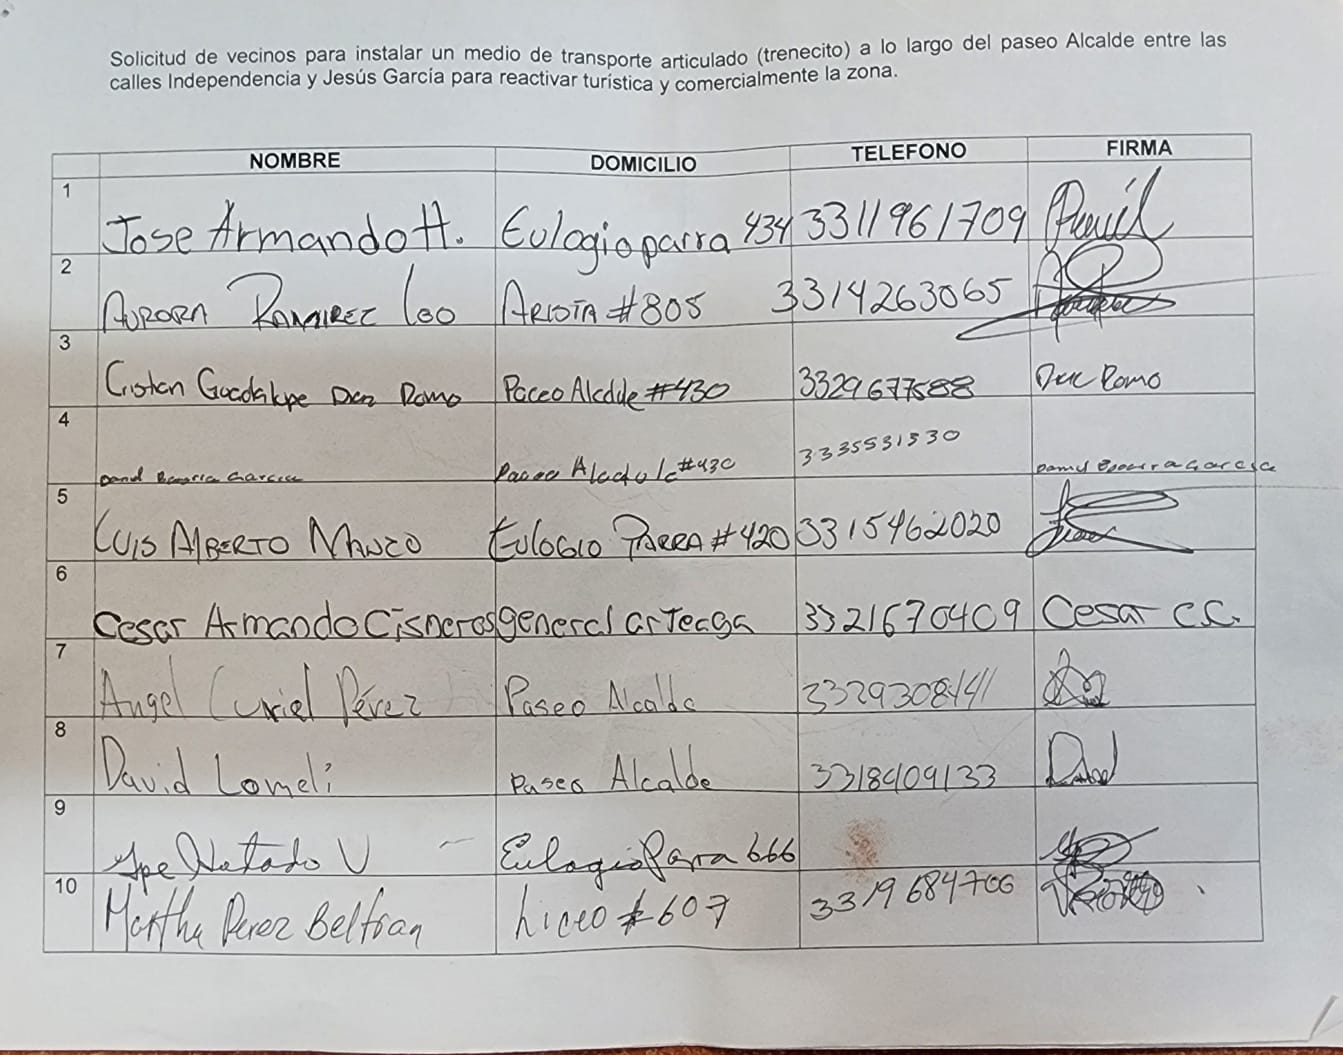 Solicitud de vecinos para instalar un medio de transporte articulado (trenecito) a lo largo del paseo Alcalde entre las
calles Independencia y Jesús García para reactivar turística y comercialmente la zona.
NOMBRE DOMICILIO TELEFONO FIRMA
1 Jose Armando H. Eulogio parra 434 3311961709
2 AURORA RAMIREZ Leo ARISTA #805 3314263065
3 Cristian Guadalupe Romo Paceo Alcdde #430 3329677588 Romo
4 Garcia Paseo #430 3335531530 Garcia
5 LUIS ALBERTO MANZO EULOGIO PARRA #420 3315462020
6 Cesar Armando Cisneros general arTeaga 3321670409 Cesar C.C.
7 Angel Curiel Pérez Paseo Alcalde 3329308141
8 David Lomelí Paseo Alcalde 3318409133 David
9 V Eulogio Parra 666
10 Martha Perez Beltran Liceo #607 3319684706